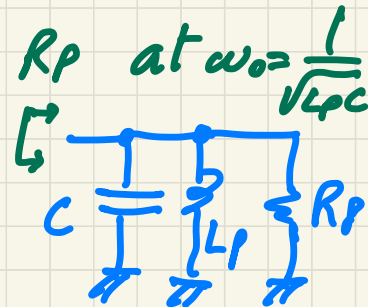 Rp at ω₀= 1/√LpC
C Lp Rp